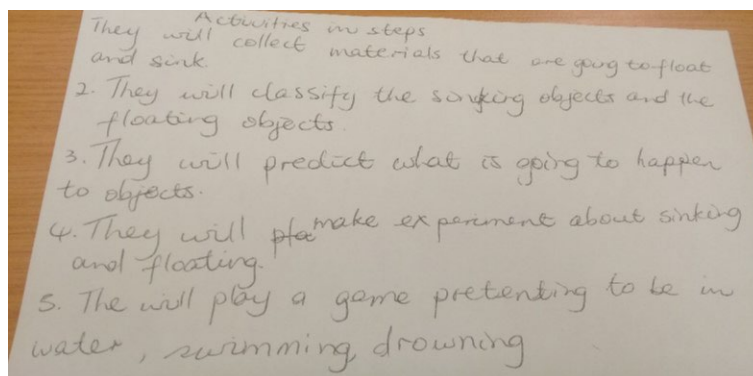 Activities in steps
They will collect materials that are going to float
and sink.
2. They will classify the sinking objects and the
floating objects.
3. They will predict what is going to happen
to objects.
4. They will pla make experiment about sinking
and floating.
5. The will play a game pretenting to be in
water, swimming, drowning